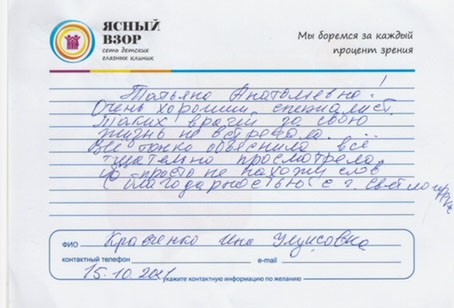 ЯСНЫЙ
ВЗОР
сеть детских
глазных клиник
Мы боремся за каждый
процент зрения
Татьяна Анатольевна!
Очень хороший специалист.
Таких врачей за свою
жизнь не встречала...
Все тонко объяснила все
тщательно просмотрела
просто не нахожу слов
С благодарностью с г.
ФИО Кравченко Инна
контактный телефон e-mail
15.10.2011
укажите контактную информацию по желанию